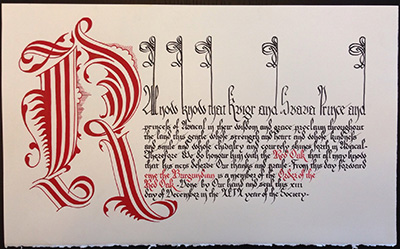 R
All now know that Kriger and Svava Prince and
princess of Avacal in their wisdom and grace proclaim throughout
the land this gentle whose strength and heart and whose kindness
and smile and whose chivalry and courtesy shines forth in Avacal.
Therefore We do honour him with the Red Oak that all may know
that his acts deserve Our thanks and praise. From this day forward
the Burgundian is a member of the Order of the
Red Oak. Done by Our hand and seal this xiii
day of December in the XLIX year of the Society.